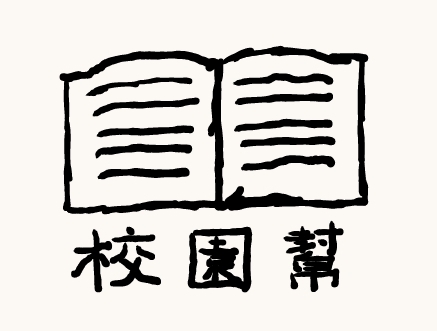 校園幫